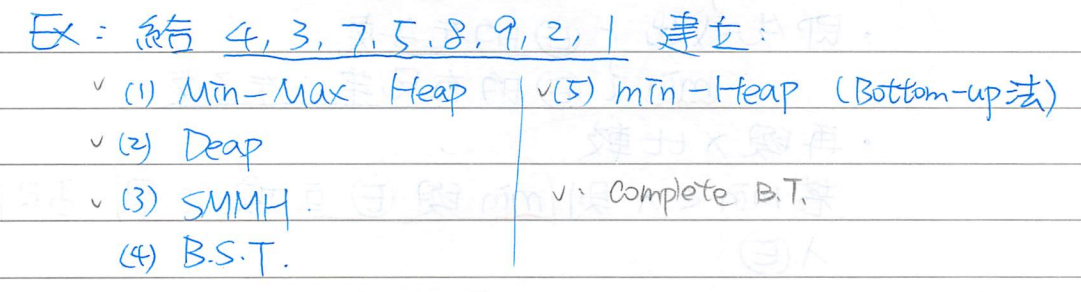 Ex：給 4, 3, 7, 5, 8, 9, 2, 1 建立：
v (1) Min-Max Heap
v (2) Deap
v (3) SMMH.
(4) B.S.T.
v (5) min-Heap (Bottom-up法)
v: Complete B.T.